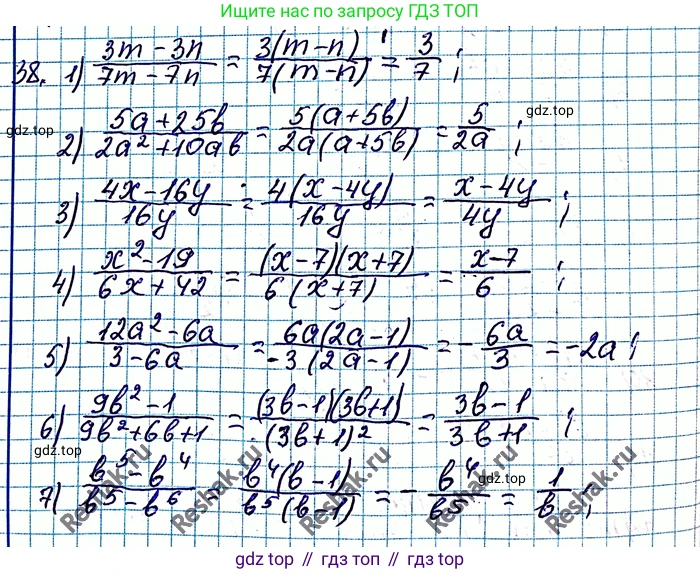 Ищите нас по запросу ГДЗ ТОП
38. 1) (3m - 3n)/(7m - 7n) = 3(m - n)/7(m - n) = 3/7 ;
gdz.top gdz.top
2) (5a + 25b)/(2a² + 10ab) = 5(a + 5b)/2a(a + 5b) = 5/2a ;
3) (4x - 16y)/16y = 4(x - 4y)/16y = (x - 4y)/4y ;
4) (x² - 19)/(6x + 42) = (x - 7)(x + 7)/6(x + 7) = (x - 7)/6 ;
5) (12a² - 6a)/(3 - 6a) = 6a(2a - 1)/-3(2a - 1) = - 6a/3 = -2a ;
6) (9b² - 1)/(9b² + 6b + 1) = (3b - 1)(3b + 1)/(3b + 1)² = (3b - 1)/(3b + 1) ;
gdz.top gdz.top
7) (b⁵ - b⁴)/(b⁵ - b⁶) = b⁴(b - 1)/b⁵(b - 1) = - b⁴/b⁵ = 1/b ;
Reshak.ru Reshak.ru Reshak.ru Reshak.ru Reshak.ru
gdz top // гдз топ // gdz.top // гдз.топ